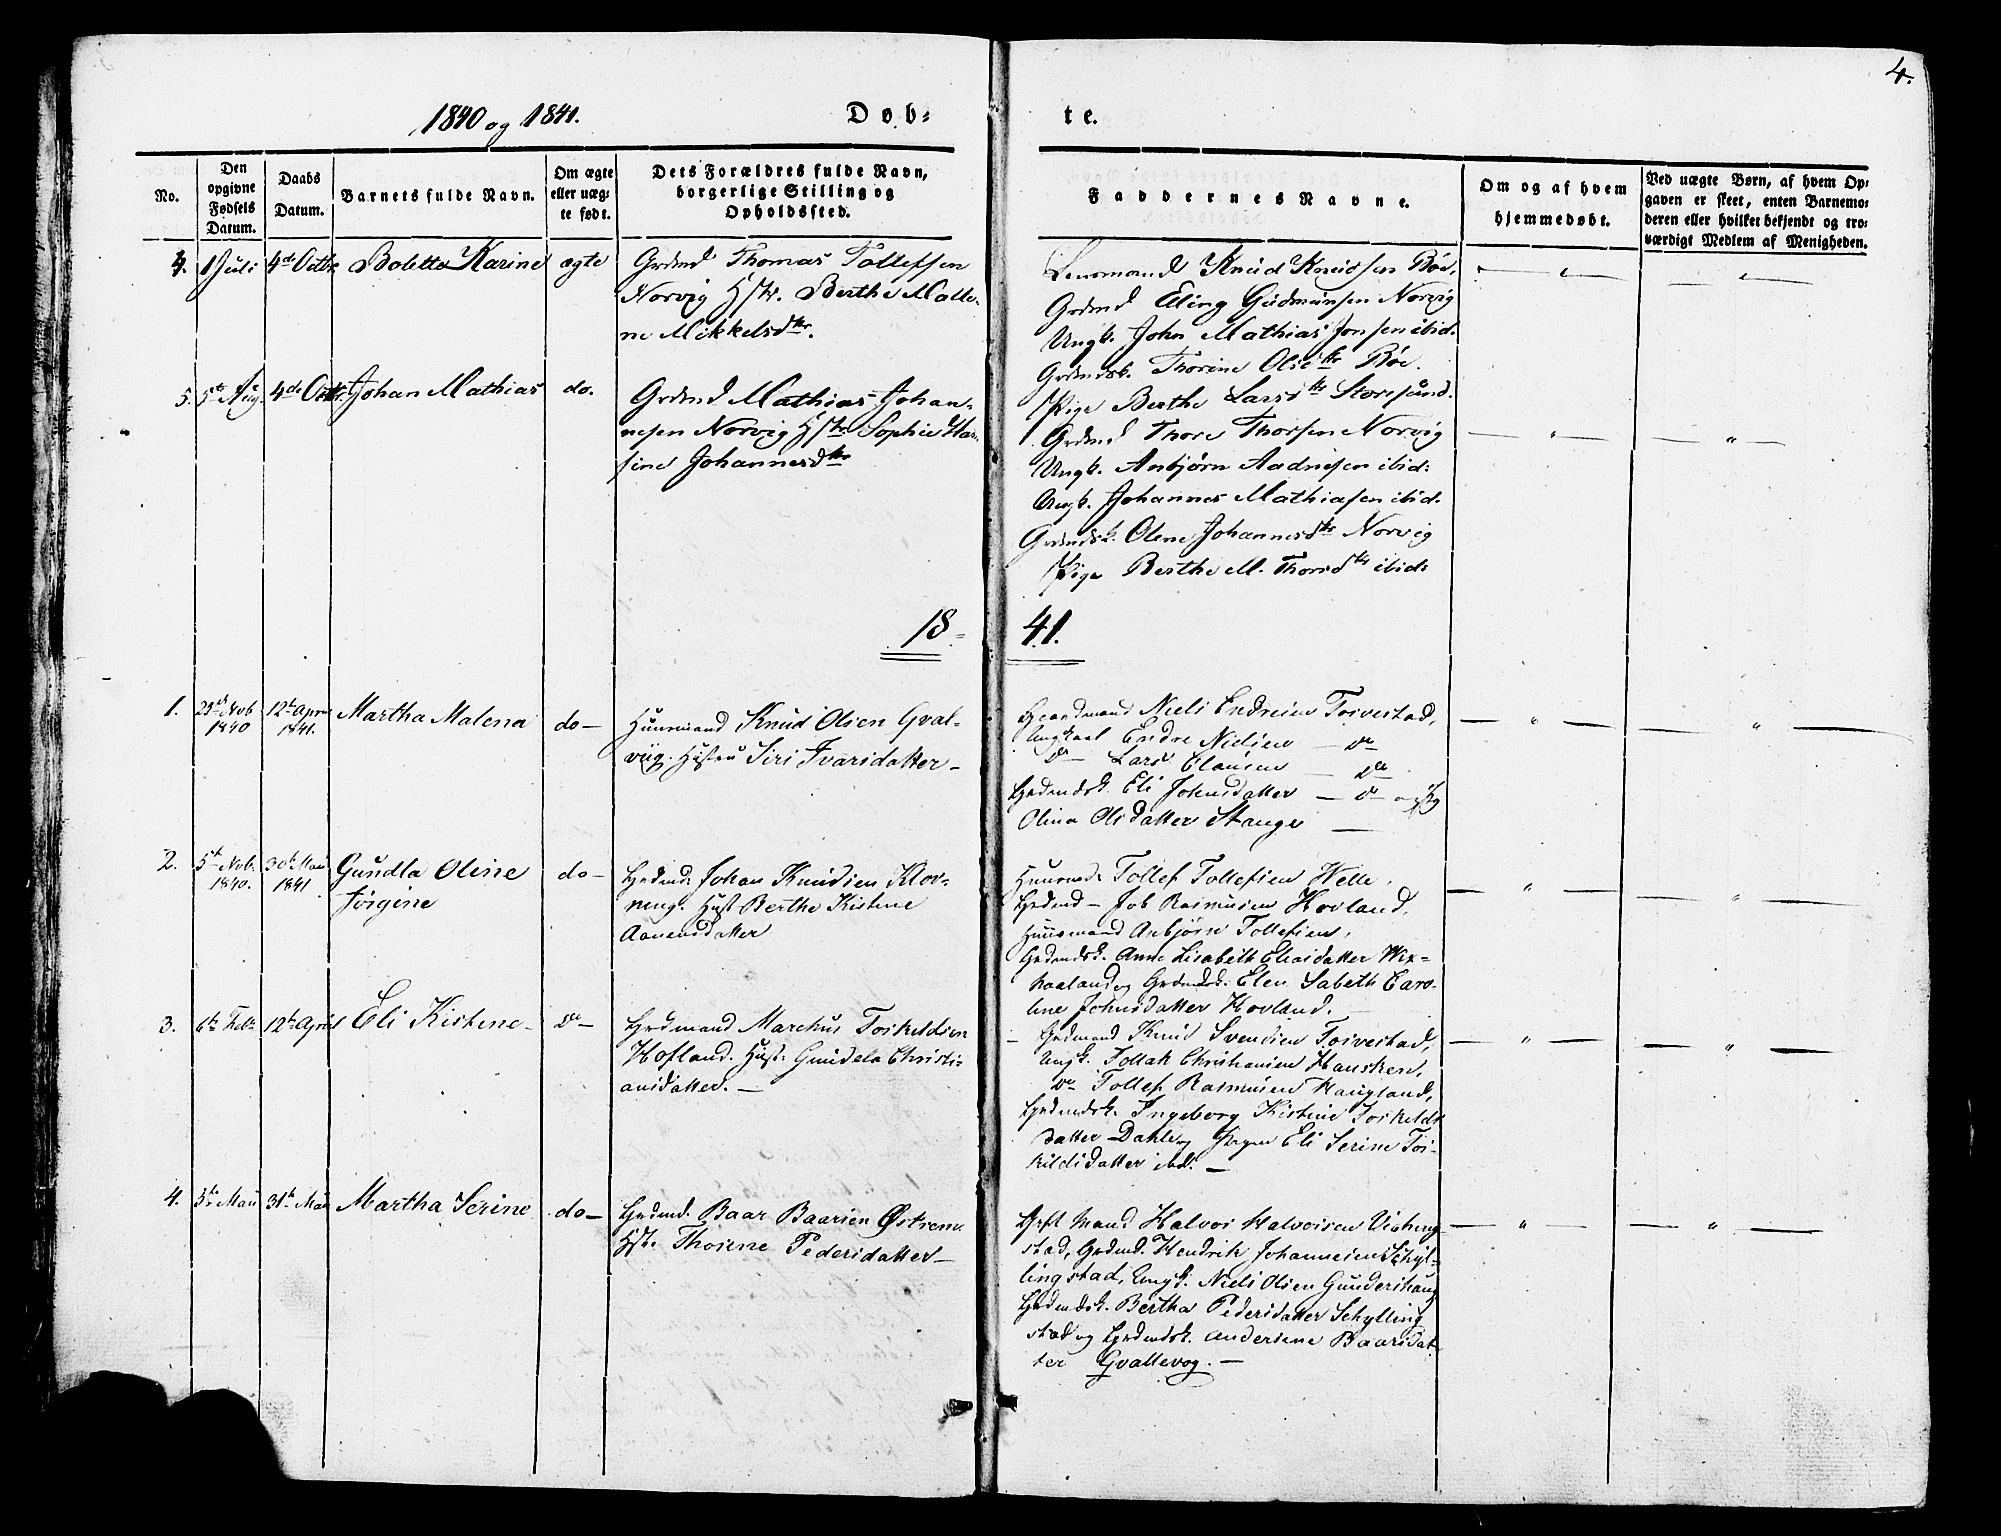 4.
1840 og 1841.
Døb-
te.
No.
Den opgivne Fødsels Datum.
Daabs Datum.
Barnets fulde Navn.
Om ægte eller uægte født.
Dets Forældres fulde Navn, borgerlige Stilling og Opholdssted.
Faddernes Navne.
Om og af hvem hjemmedøbt.
Ved uægte Børn, af hvem Opgaven er skeet, enten Barnemoderen eller hvilket bekjendt og troværdigt Medlem af Menigheden.
4. 1 Juli 4de Octbr Bolette Karine ægte
Grdmd Thomas Tollefsen
Norvig Hstr. Berthe Malle-
ne Mikkelsdtr.
Lensmand Knud Knudsen Bøe,
Grdmd Eling Gudmunsen Norvig
Ungk. John Mathias Jonsen ibid.
Grdmdsk. Thorine Olsdtr Bøe.
Pige Berthe Larsdtr Storesund.
5. 5te Aug. 4de Octbr. Johan Mathias do.
Grdmd Mathias Johan-
nesen Norvig Hstr Sophie Han-
sine Johannesdtr
Grdmd Thore Thorsen Norvig
Ungk. Anbjørn Aadnesen ibid:
Ungk. Johannes Mathiasen ibid.
Grdmdsk. Olene Johannesdtr Norvig
Pige Berthe M. Thorsdtr ibid:
18-
41.
1. 12te April 1841. Martha Malena do-
Huusmand Knud Olsen Gval-
viig. Hustru Siri Ivarsdatter-
Gaardmand Niels Endresen Torvestad,
Ungkaal Endre Nielsen - do
do- Lars Clausen - do
Grdmdsk. Eli Johnsdatter - do- og Pig
Olina Olsdatter Stange -
2. 5te Nvb. 1840. 30te Mai 1841 Gundla Oline
Jørgine do-
Grdmd. Johan Knudsen Klov-
ning. Hust Berthe Kistine
Aanensdatter
Huusmd. Tollef Tollefsen Helle,
Grdmd- Job Rasmusen Hovland,
Huusmand Anbjørn Tollefsen,
Grdmdsk. Anne Lisabeth Eliasdatter Wix-
haaland og Grdmdsk. Elen Sabeth Caro-
line Johnsdatter Hovland.
3. 6te Feb. 12te April Eli Kistine- do-
Grdmand Marchus Torkildsen
Hofland. Hust. Gundela Christi-
ansdatter.-
Grdmand Knud Svendsen Torvestad,
Ungk. Tollak Christiansen Hausken,
do Tollef Rasmusen Haugland,
Grdmdsk. Ingeborg Kistine Torkilds
datter Dahle og Pigen Eli Serine Tor-
kildsdatter ibd. -
4. 31te Mai Martha Serine do-
Grdmd. Baar Baarsen Østrem.
Hst. Thorine Pedersdatter-
Grft Mand Halvor Halvorsen Visting-
stad, Grdmd. Hendrik Johannesen Schyl-
lingstad, Ungk. Niels Olsen Gundershaug
Grdmdsk. Bertha Pedersdatter Schylling
stad og Grdmdsk. Andersine Baarsdat-
ter Gvallevog. -